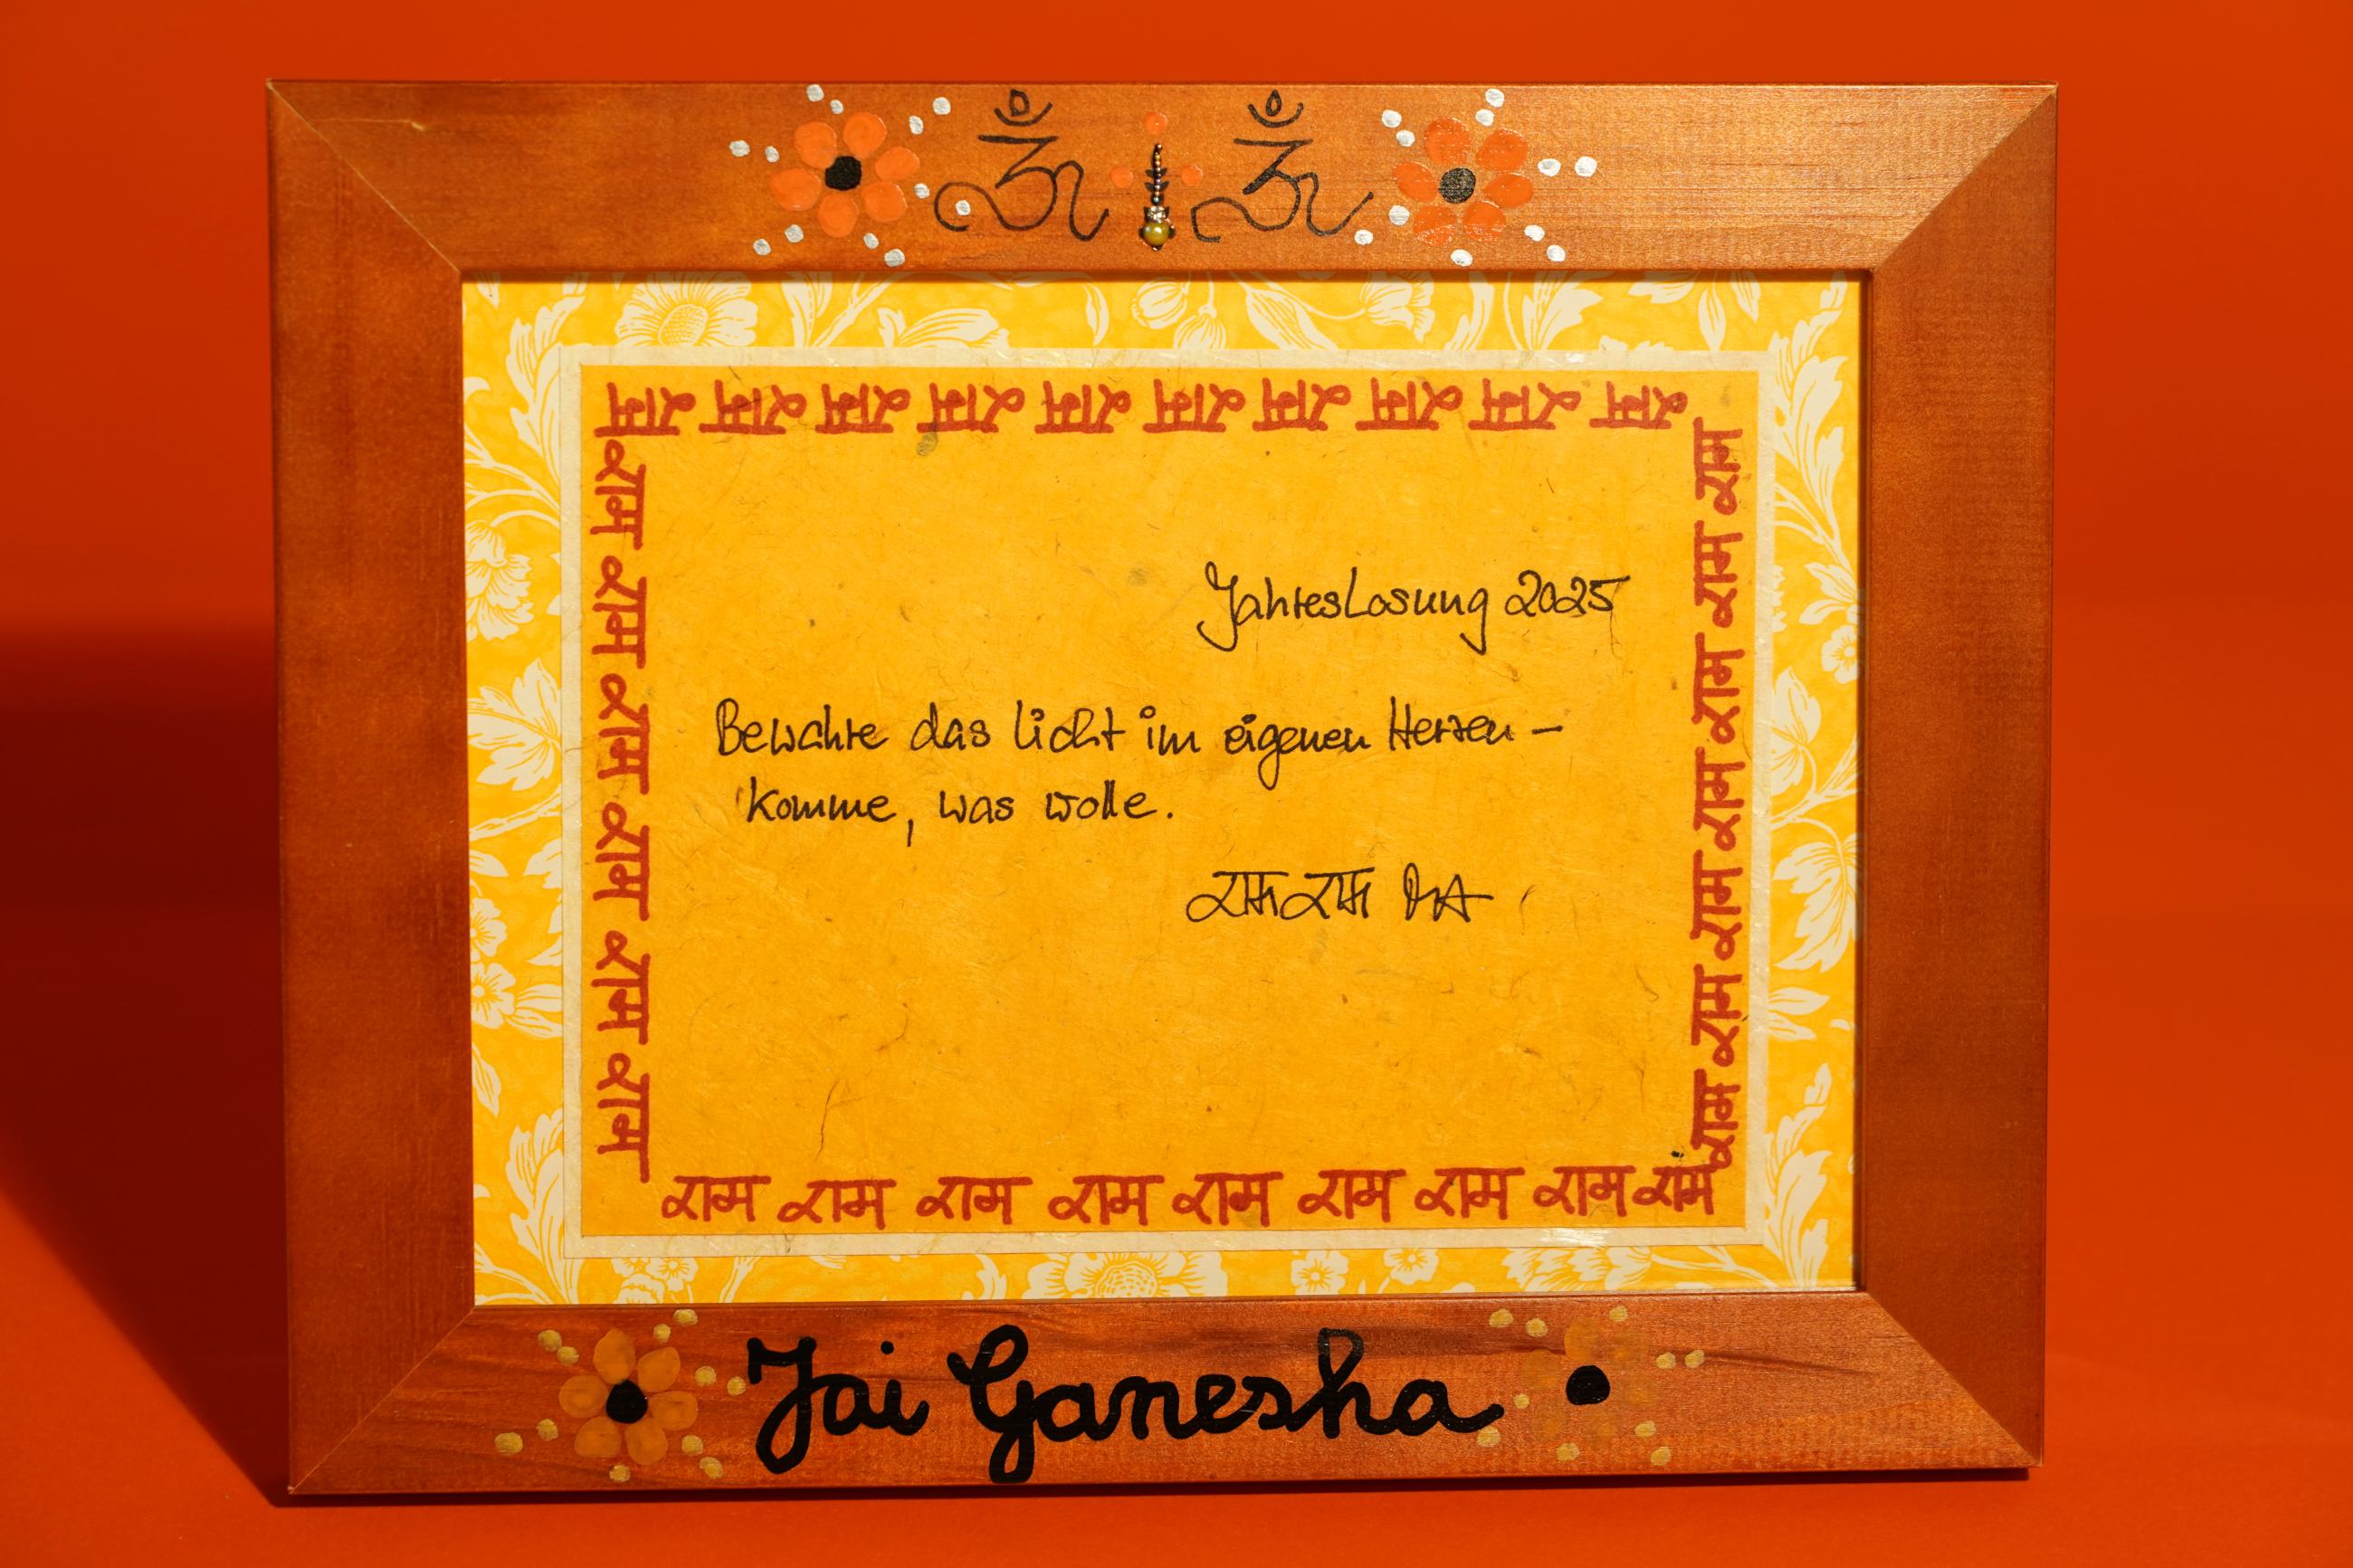 ॐ ॐ
राम राम राम राम राम राम राम राम राम राम
राम राम राम राम राम राम
JahresLosung 2025
Bewahre das Licht im eigenen Herzen –
komme, was wolle.
राम राम MA
राम राम राम राम राम राम राम
राम राम राम राम राम राम राम राम राम
Jai Ganesha